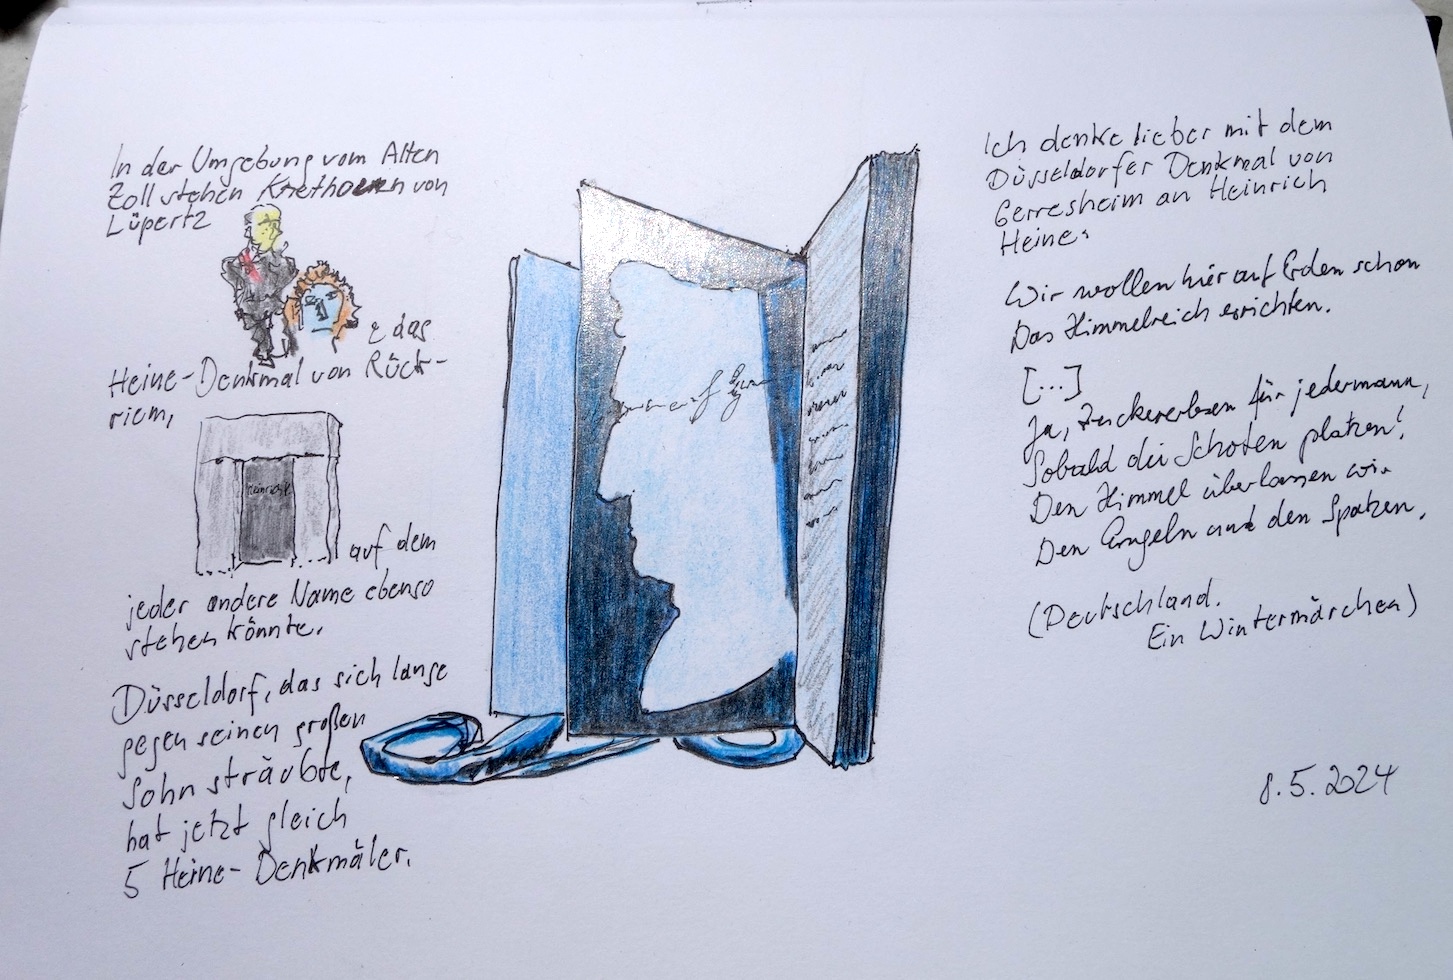 In der Umgebung vom Alten
Zoll stehen von
Lüpertz
& das
Heine-Denkmal von Rück-
riem,
auf dem
jeder andere Name ebenso
stehen könnte.
Düsseldorf, das sich lange
gegen seinen großen
Sohn sträubte,
hat jetzt gleich
5 Heine-Denkmäler.
Ich denke lieber mit dem
Düsseldorfer Denkmal von
Gerresheim an Heinrich
Heine:
Wir wollen hier auf Erden schon
Das Himmelreich errichten.
[...]
Ja, Zuckererbsen für jedermann,
Sobald die Schoten platzen!
Den Himmel überlassen wir
Den Engeln und den Spatzen.
(Deutschland.
Ein Wintermärchen)
8.5.2024